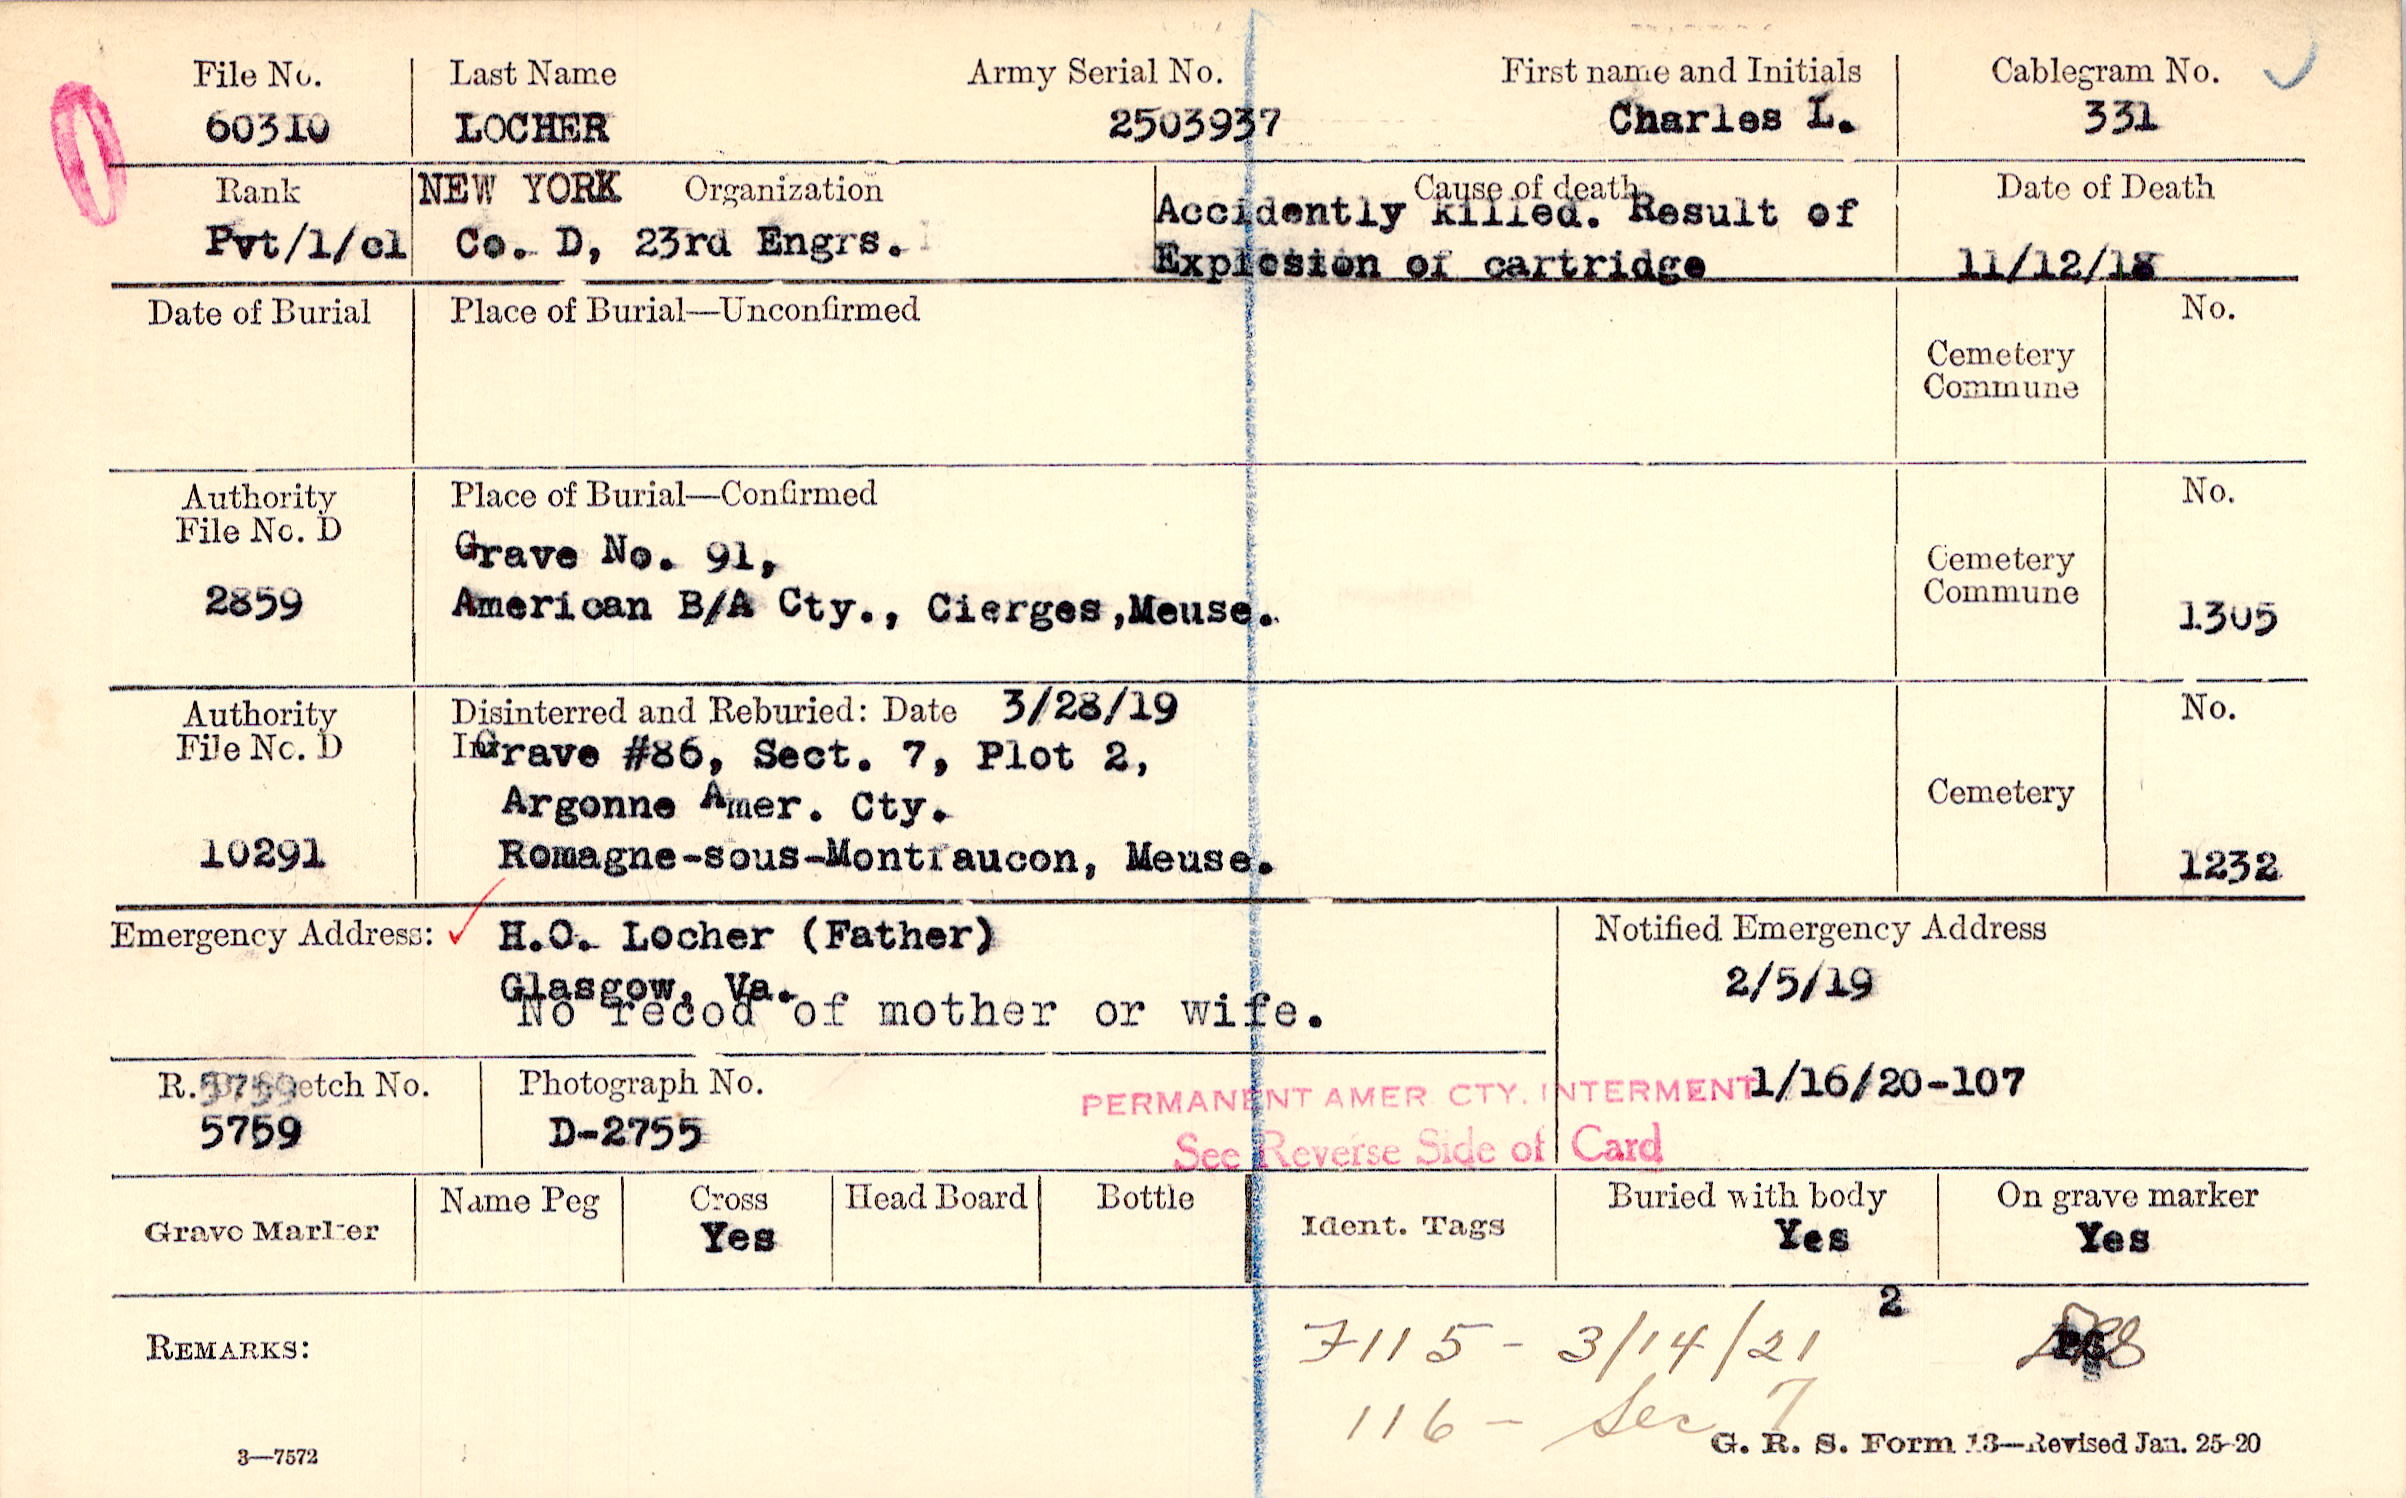 File No. Last Name Army Serial No. First name and Initials Cablegram No.
60310 LOCHER 2503937 Charles L. 331
Rank NEW YORK Organization Cause of death Date of Death
Pvt/1/cl Co. D, 23rd Engrs. Accidently killed. Result of
Explosion of cartridge 11/12/18
Date of Burial Place of Burial—Unconfirmed No.
Cemetery
Commune
Authority Place of Burial—Confirmed No.
File No. D
Grave No. 91,
Cemetery
Commune
2859 American B/A Cty., Cierges,Meuse. 1305
Authority Disinterred and Reburied: Date 3/28/19 No.
File No. D In Grave #86, Sect. 7, Plot 2,
Argonne Amer. Cty. Cemetery
10291 Romagne-sous-Montfaucon, Meuse. 1232
Emergency Address: H.O. Locher (Father) Notified Emergency Address
Glasgow, Va. 2/5/19
No recod of mother or wife.
R. B. Sketch No. Photograph No. 1/16/20-107
5759
PERMANENT AMER CTY. INTERMENT
5759 D-2755
See Reverse Side of Card
Grave Marker Name Peg Cross Head Board Bottle Ident. Tags Buried with body On grave marker
Yes Yes Yes
2
REMARKS: 7115 - 3/14/21
116 - Sec 7
3—7572 G. R. S. Form 13—Revised Jan. 25-20